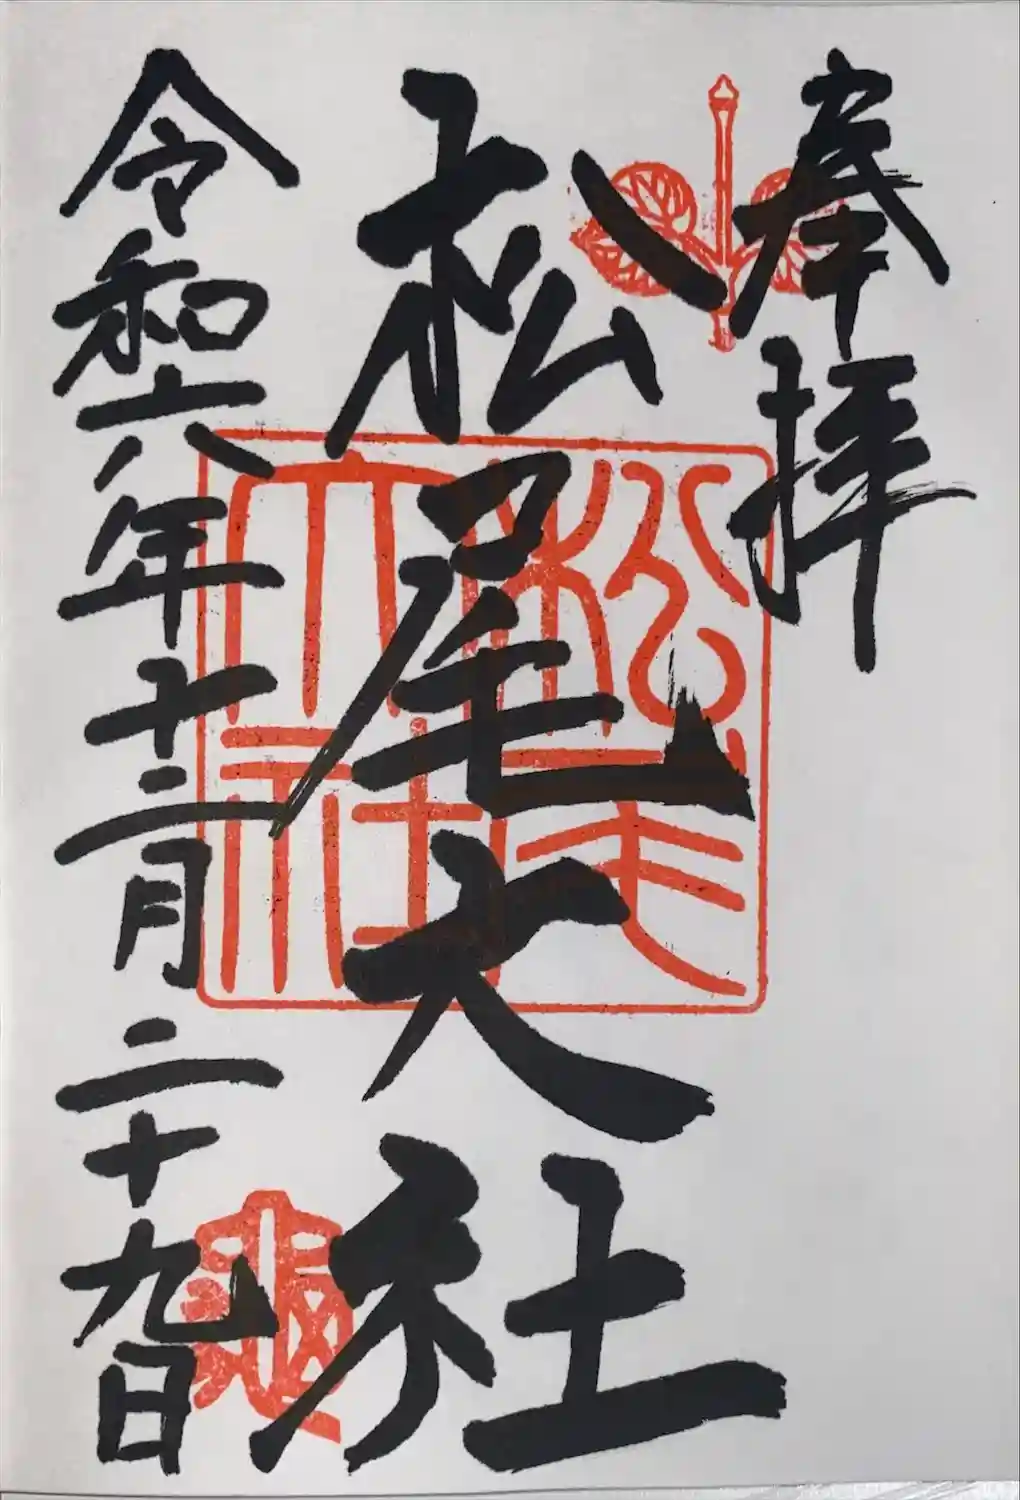 奉拝
松尾大社
令和六年十二月二十九日
松尾大社